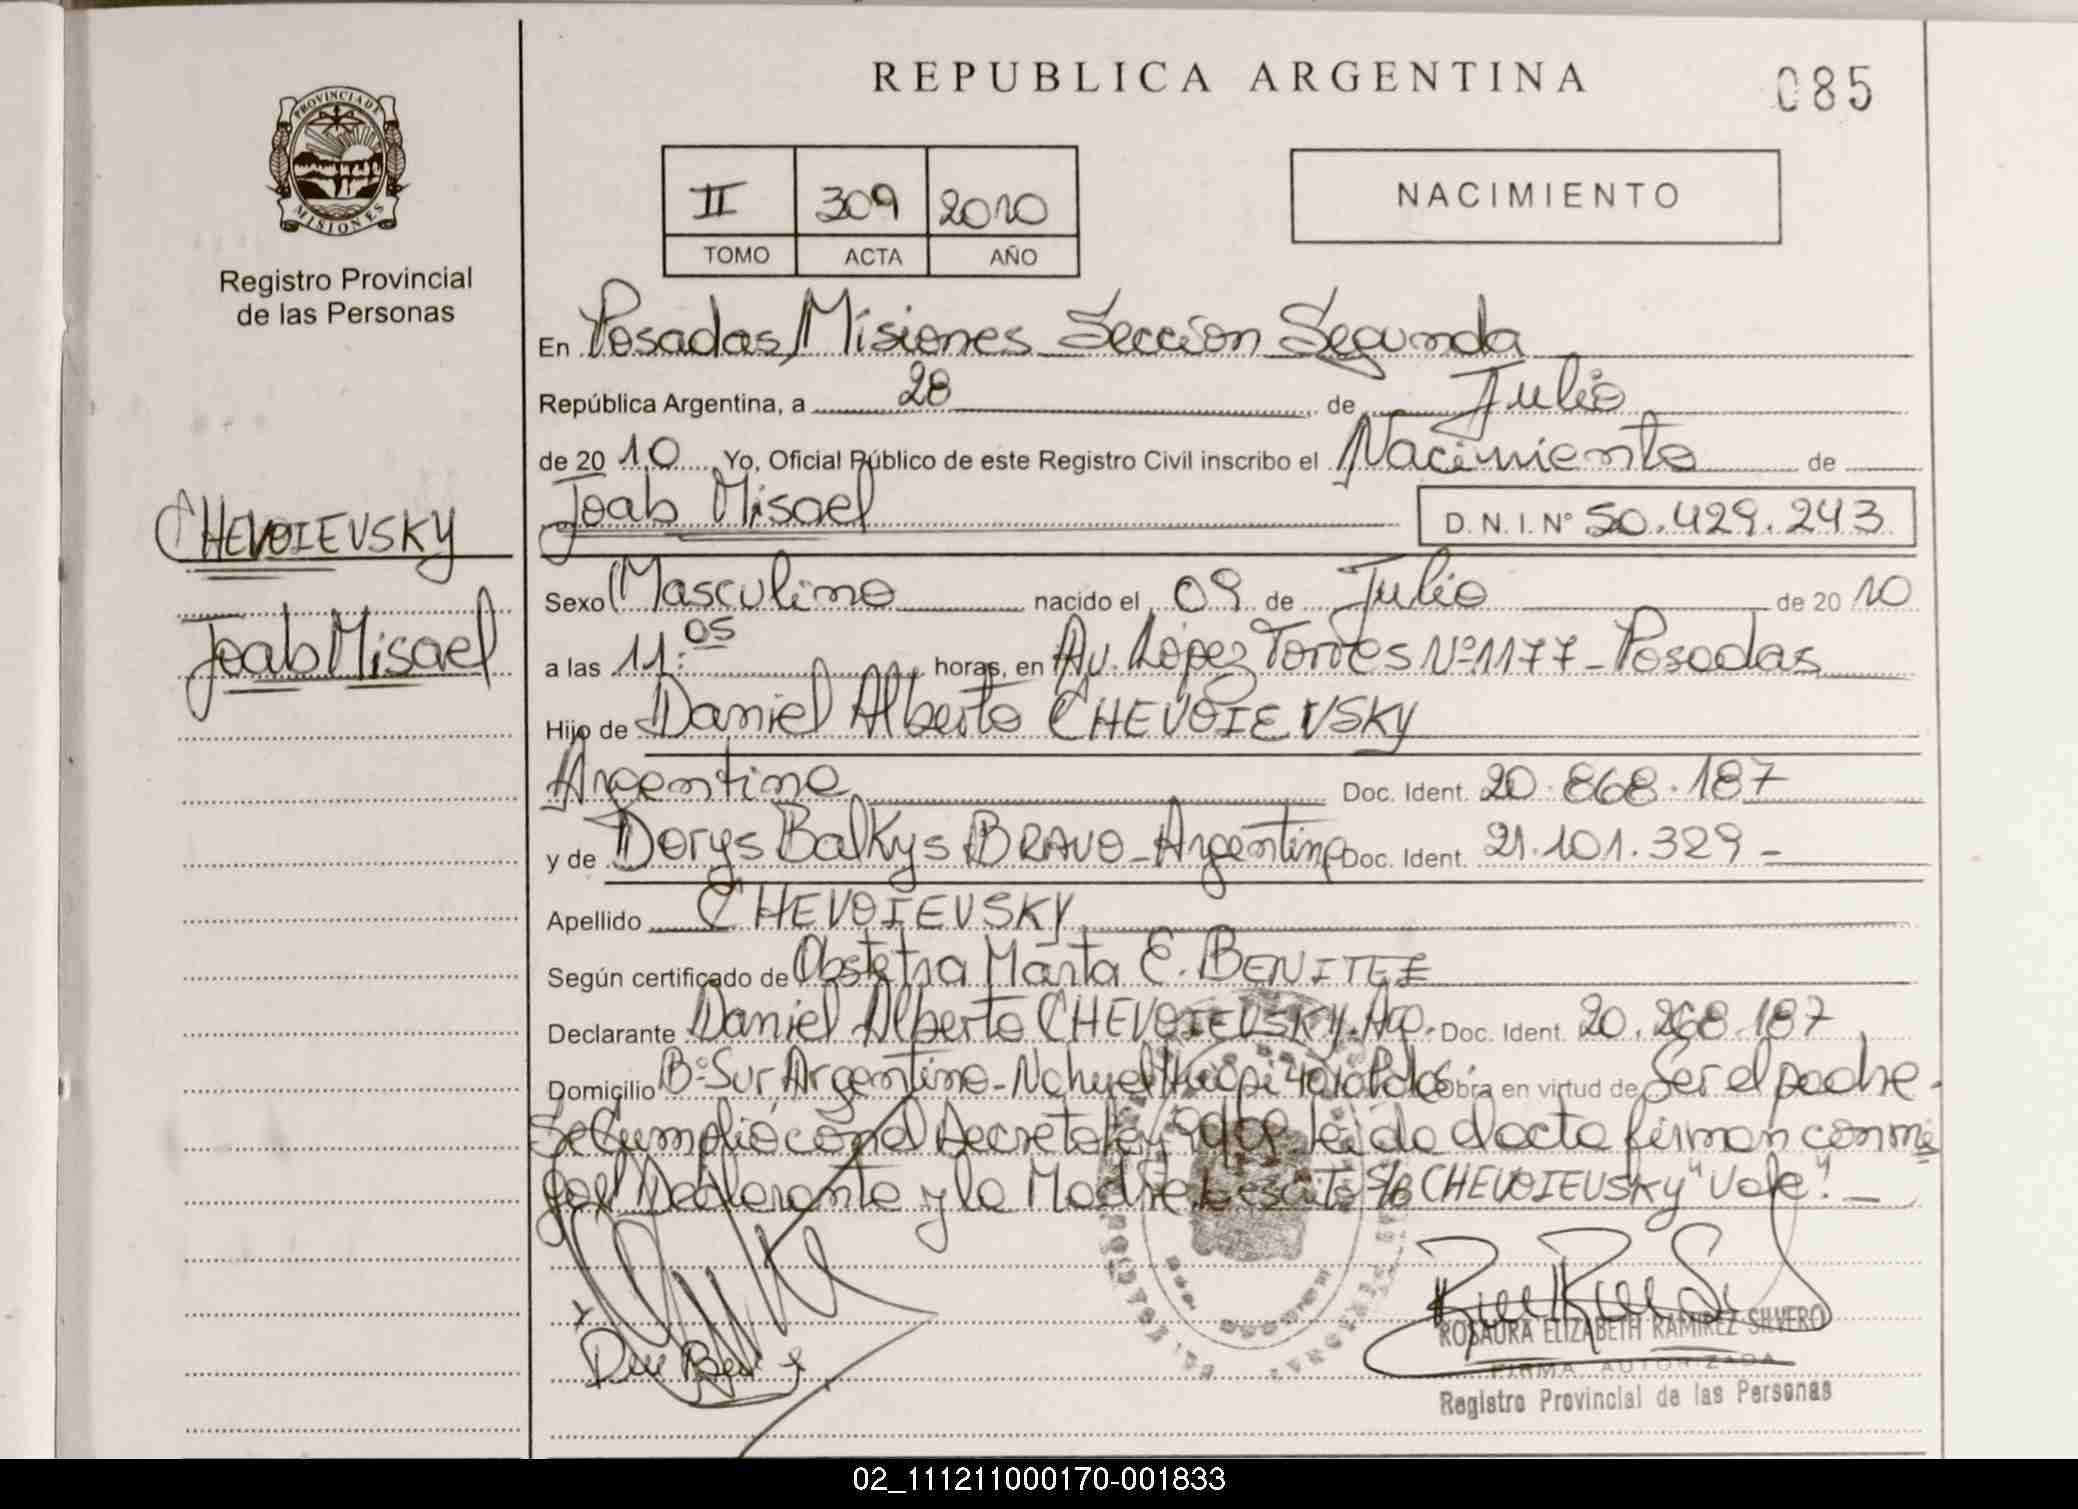 REPUBLICA ARGENTINA
085
PROVINCIA DE
MISIONES
Registro Provincial
de las Personas
II 309 2010
TOMO ACTA AÑO
NACIMIENTO
En Posadas, Misiones Seccion Segunda
República Argentina, a 28 de Julio
de 2010 Yo, Oficial Público de este Registro Civil inscribo el Nacimiento de
Joab Misael D.N.I. Nº 50.429.243
CHEVOIEVSKY
Joab Misael
Sexo Masculino nacido el 09 de Julio de 2010
a las 11:05 horas, en Av. López Torres Nº 1177 - Posadas
Hijo de Daniel Alberto CHEVOIEVSKY
Argentino Doc. Ident. 20.868.187
y de Dorys Balkys BRAVO - Argentina Doc. Ident. 21.101.329 -
Apellido CHEVOIEVSKY
Según certificado de Obstetra Marta E. BENITEZ
Declarante Daniel Alberto CHEVOIEVSKY. Arg. Doc. Ident. 20.268.187
Domicilio Bº Sur Argentino - Nahuel Huapi 4010 Pdas Obra en virtud de Ser el padre.
Se Cumplió con el Decreto Ley Leída el acta firman conmi
go el Declarante y la Madre S/B CHEVOIEVSKY "Vale". -
ROSAURA ELIZABETH RAMIREZ SILVERO
FIRMA AUTORIZADA
Registro Provincial de las Personas
02_111211000170-001833